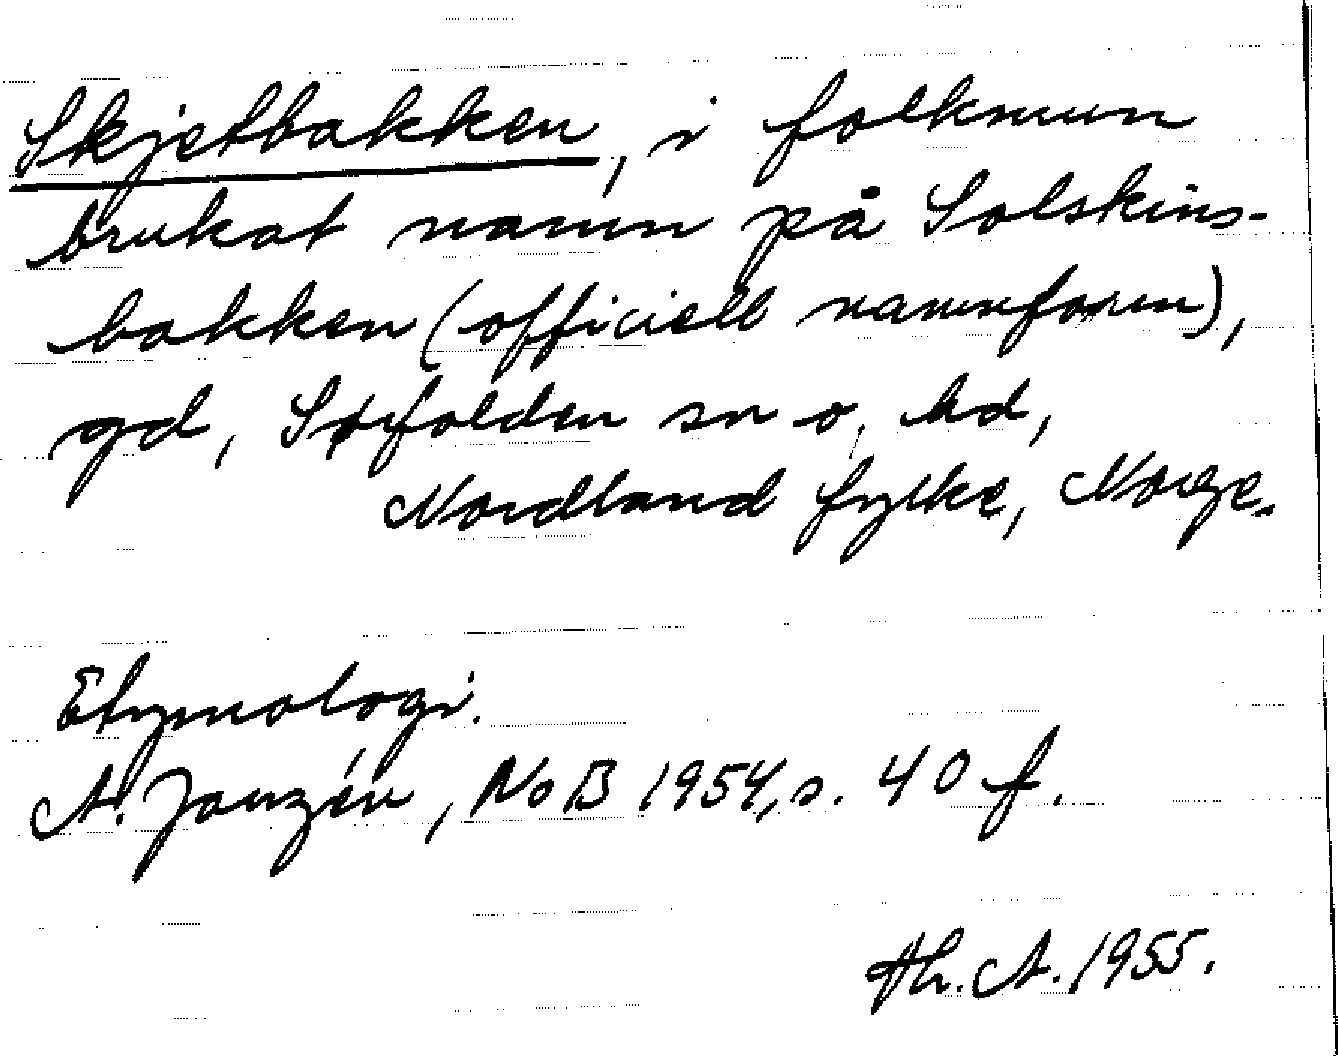 Skjetbakken, i folkmun
brukat namn på Solskins-
bakken (officiell namnform),
gd, Sørfolden sn o. hd,
Nordland fylke, Norge.
Etymologi.
A. Janzén, NoB 1954, s. 40 f.
Th. A. 1955.